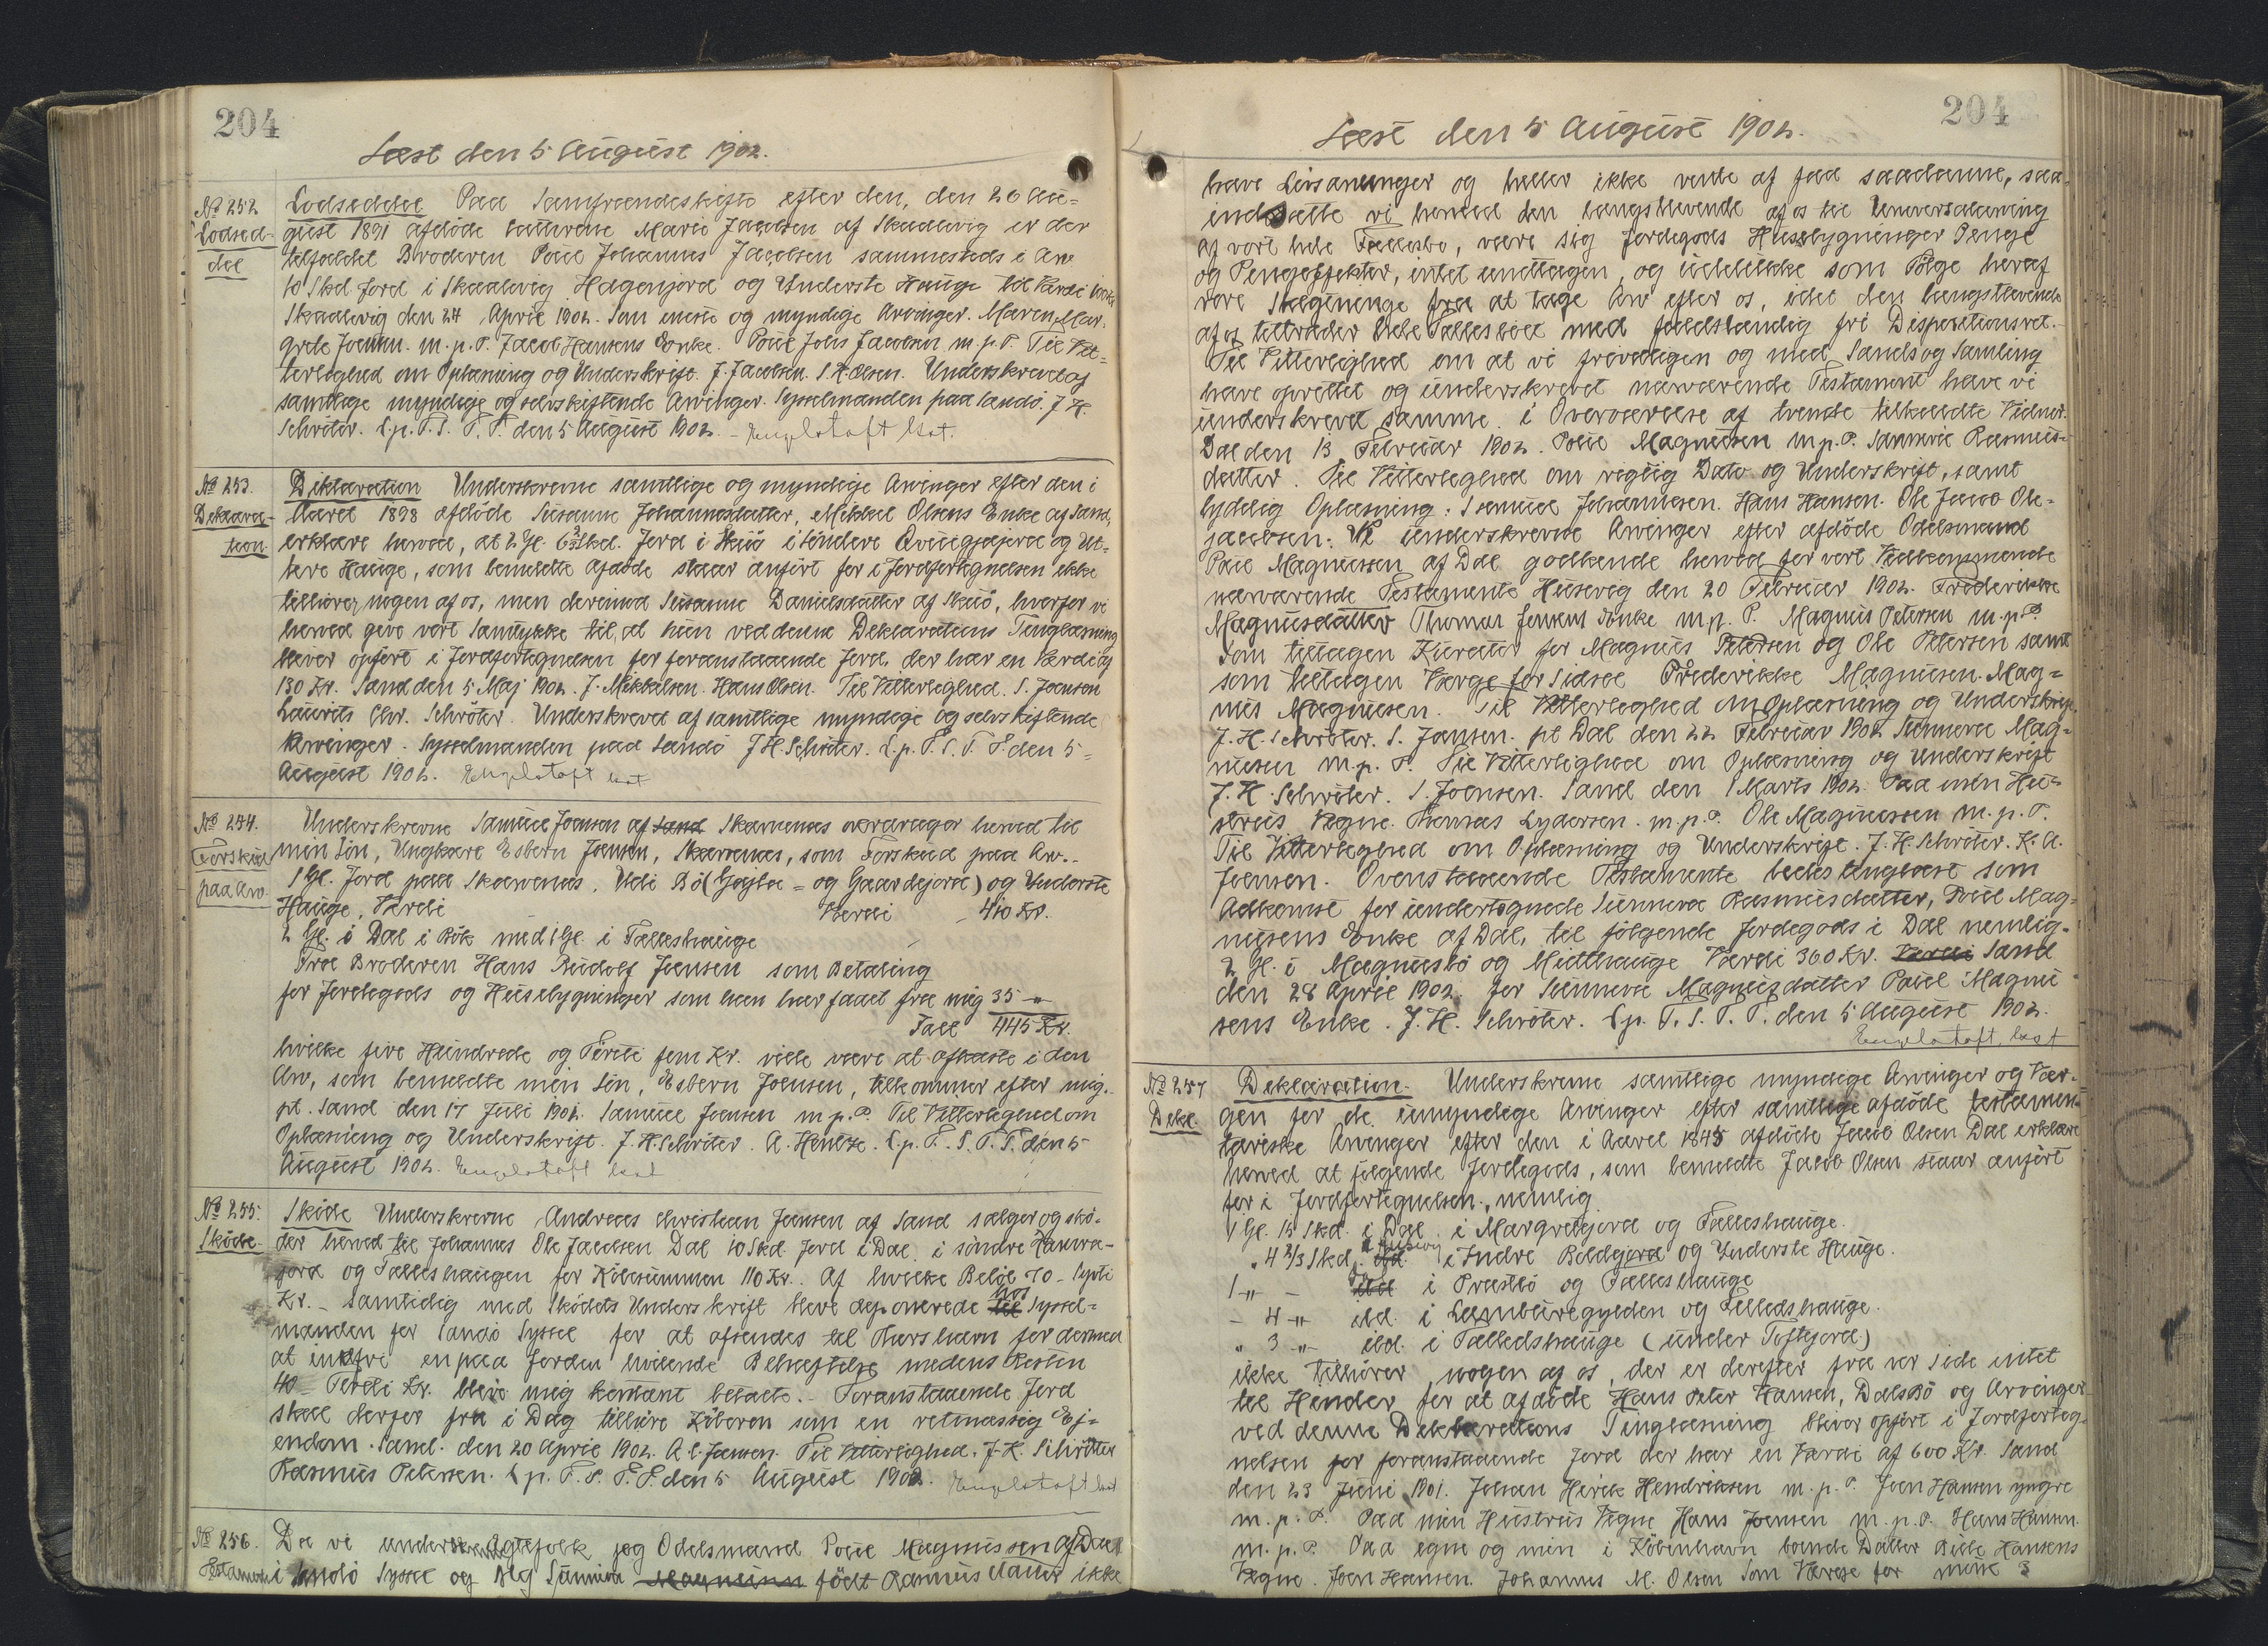 204
Læst den 5 August 1902.
No 252
Lodsed-
del
Lodseddel Paa Samfrændeskifte efter den, den 26 Au=
gust 1891 afdöde Cathrine Marie Jacobsen af Skaalevig er der
tilfaldet Broderen Poul Johannes Jacobsen sammesteds i Arv
10 Skd Jord i Skaalevig Hagenjord og Underste Hauge til Værdi
Skaalevig den 24 April 1902. Som eneste og myndige Arvinger. Maren Mar-
grete Joensen. m.p.P. Jacob Hansens Enke. Poul Johs Jacobsen m.p.P. Til Vit=
terlighed om Oplæsning og Underskrift. J. Jacobsen. S.H. Olsen. Underskrevet af
samtlige myndige og selvskiftende Arvinger. Sysselmanden paa Sandö. J H.
Schröter. L.p.T.S. T.P. den 5 August 1902. - Engelstoft kst.
No 253.
Deklara-
tion
Deklaration Underskrevne samtlige og myndige Arvinger efter den i
Aaret 1898 afdöde Susanne Johannesdatter, Mikkel Olsens Enke af Sand,
erklære herved, at 2 Gl. 6 2/3 Skd. Jord i Skuö i söndere Qviugjajord og Ut-
tere Hauge, som bemeldte Afdöde staar anfört for i Jordfortegnelsen ikke
tilhörer nogen af os, men derimod Susanne Danielsdatter af Skuö, hvorfor vi
herved give vort Samtykke til, at hun ved denne Deklarations Tinglæsning
bliver opfört i Jordfortegnelsen for foranstaaende Jord, der har en Værdi af
130 Kr. Sand den 5 Maj 1902. J. Mikkelsen. Hans Olsen. Til Vitterlighed. S. Joensen
Laurits Chr. Schröter. Underskrevet af samtlige myndige og selvskiftende
Arvinger. Sysselmanden paa Sandö J H Schröter. L.p. T. S. T. P. den 5=
August 1902. Engelstoft kst
No 254.
Forskud
paa Arv.
Underskrevne Samuel Joensen af Sand Skarvenæs overdrager herved til
min Sön, Ungkarl Esbern Joensen, Skarvenæs, som Forskud paa Arv.-
1 Gl. Jord paa Skarvenæs, Udi Bö ( og Gaardejord) og Underste
Hauge, Værdi Værdi - 410 Kr.
2 Gl. i Dal i Bök med 1 Gl. i Fælleshauge
Fra Broderen Hans Rudolf Joensen som Betaling
for Jordegods og Huusbygninger som han har faaet fra mig 35 -"-
Tall 445 Kr.
hvilke fire Hundrede og Firti fem Kr. ville være at afkorte i den
Arv, som bemeldte min Sön, Esbern Joensen, tilkommer efter mig.
pt. Sand den 17 Juli 1902. Samuel Joensen m.p.P. Til Vitterlighed om
Oplæsning og Underskrift. J. H. Schröter. A. Hentze. L.p. T. S. T. P. den 5
August 1902. Engelstoft kst
No 255.
Sköde.
Sköde Underskrevne Andreas Christian Joensen af Sand sælger og skö-
der herved til Johannes Ole Jacobsen Dal 10 Skd. Jord i Dal i söndre Hamra-
jord og Fælleshaugen for Köbesummen 110 Kr.. Af hvilke Belöb 70 - Sytti
Kr. - samtidig med Sködets Underskrift bleve deponerede til hos Syssel=
manden for Sandö Syssel for at afsendes til Thorshavn for dermed
at indfri en paa Jorden hvilende Behæftelse medens Resten
40 - Firti Kr. blev mig kontant betalte. - Foranstaaende Jord
skal derfor fra i Dag tilhöre Köberen som en retmæssig Ej-
endom. Sand. den 20 April 1902. A. C. Joensen. Til Vitterlighed. J. H. Schröter
Rasmus Petersen. L.p. T. S. T. P. den 5 August 1902. Engelstoft kst
No 256.
Testamente
Da vi underskrevne Ægtefolk jeg Odelsmand Poul Magnussen af Dal
i Sandö Syssel og Jeg Sunniva Magnussen födt Rasmusdatter ikke
204
Læst den 5 August 1902.
have Livsarvinger og heller ikke vente af faa saadanne, saa
indsætte vi herved den længstlevende af os til Universalarving
af vort hele Fællesbo, være sig Jordegods Huusbygninger Penge
og Pengeeffekter, intet undtagen, og udelukke som Fölge heraf
vore Slægtninge fra at tage Arv efter os, idet den længstlevende
af os tiltræder hele Fællesboet med fuldstændig fri Dispositionsret.
Til Vitterlighed om at vi frivilligen og med Sands og Samling
have oprettet og underskrevet nærværende Testament have vi
underskrevet samme i Overværelse af trende tilkaldte Vidner.
Dal den 13 Februar 1902. Poul Magnussen m.p.P. Sunneva Rasmus-
datter. Til Vitterlighed om rigtig Dato og Underskrift, samt
lydelig Oplæsning: Samuel Johannesen. Hans Hansen. Ole Jacob Ole-
jacobsen. Vi underskrevne Arvinger efter afdöde Odelsmand
Poul Magnussen af Dal godkende herved for vort Vedkommende
nærværende Testamente Husevig den 20 Februar 1902. Frederikke
Magnusdatter Thomas Jensens Enke m.p. P. Magnus Petersen m.p.P.
Som tiltagen Kurator for Magnus Petersen og Ole Petersen samt
som tiltagen Værge for Sidsel Frederikke Magnussen. Mag=
nus Magnussen. Til Vitterlighed om Oplæsning og Underskrift.
J. H. Schröter. S. Joensen. pt Dal den 22 Februar 1902 Sunneva Mag=
nussen m.p. P. Til Vitterlighed om Oplæsning og Underskrift
J. H. Schröter. S. Joensen. Sand den 1 Marts 1902. Paa min Hu-
strus Vegne. Thomas Lydersen. m.p.P. Ole Magnussen m.p.P.
Til Vitterlighed om Oplæsning og Underskrift. J. H. Schröter. K. A.
Joensen. Ovenstaaende Testamente bedes tinglæst som
Adkomst for undertegnede Sunneva Rasmusdatter, Poul Mag-
nussens Enke af Dal, til fölgende Jordegods i Dal nemlig.
2 Gl. i Magnusbö og Mutthauge Værdi 360 Kr. Værdi Sand
den 28 April 1902. for Sunneva Magnusdatter Poul Magnus-
sens Enke. J. H. Schröter. L.p. T. S. T. P. den 5 August 1902.
Engelstoft, kst
No 257
Dekl.
Deklaration. Underskrevne samtlige myndige Arvinger og Vær-
gen for de umyndige Arvinger efter samtlige afdöde testamen-
tariske Arvinger efter den i Aaret 1845 afdöde Jacob Olsen Dal erklære
herved at fölgende Jordegods, som bemeldte Jacob Olsen staar anfört
for i Jordfortegnelsen, nemlig
1 Gl. 15 Skd. i Dal i Margretejord og Fælleshauge.
" 4 2/3 Skd. ibd. i Husevig i Indre Böldgjord og Underste Hauge.
1 -"- - ibd Dal i Præstbö og Fælleshauge
- 4 -"- ibd. i Lambaregyrden og Fælledshauge.
" 3 -"- ibd. i Fælledshauge (under Toftejord)
ikke tilhörer nogen af os, der er derefter fra vor Side intet
til Hinder for at afdöde Hans Peter Hansen, Dalsbö og Arvinger
ved denne Deklarations Tinglæsning bliver opfört i Jordforteg-
nelsen for foranstaaende Jord der har en Værdi af 600 Kr. Sand
den 23 Juni 1901. Johan Henrik Hendriksen m.p.P. Joen Hansen yngre
m.p.P. Paa min Hustrus Vegne Hans Joensen m.p.P. Hans Hansen.
m.p.P. Paa egne og min i Köbenhavn boende Datter Billa Hansens
Vegne. Joen Hansen. Johannes M. Olsen Som Værge for mine 3